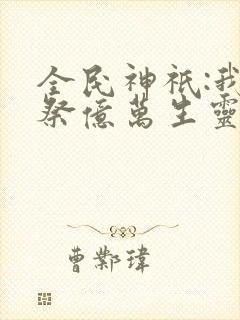 全民神祇:我
祭億萬生靈
曹鄴瑋